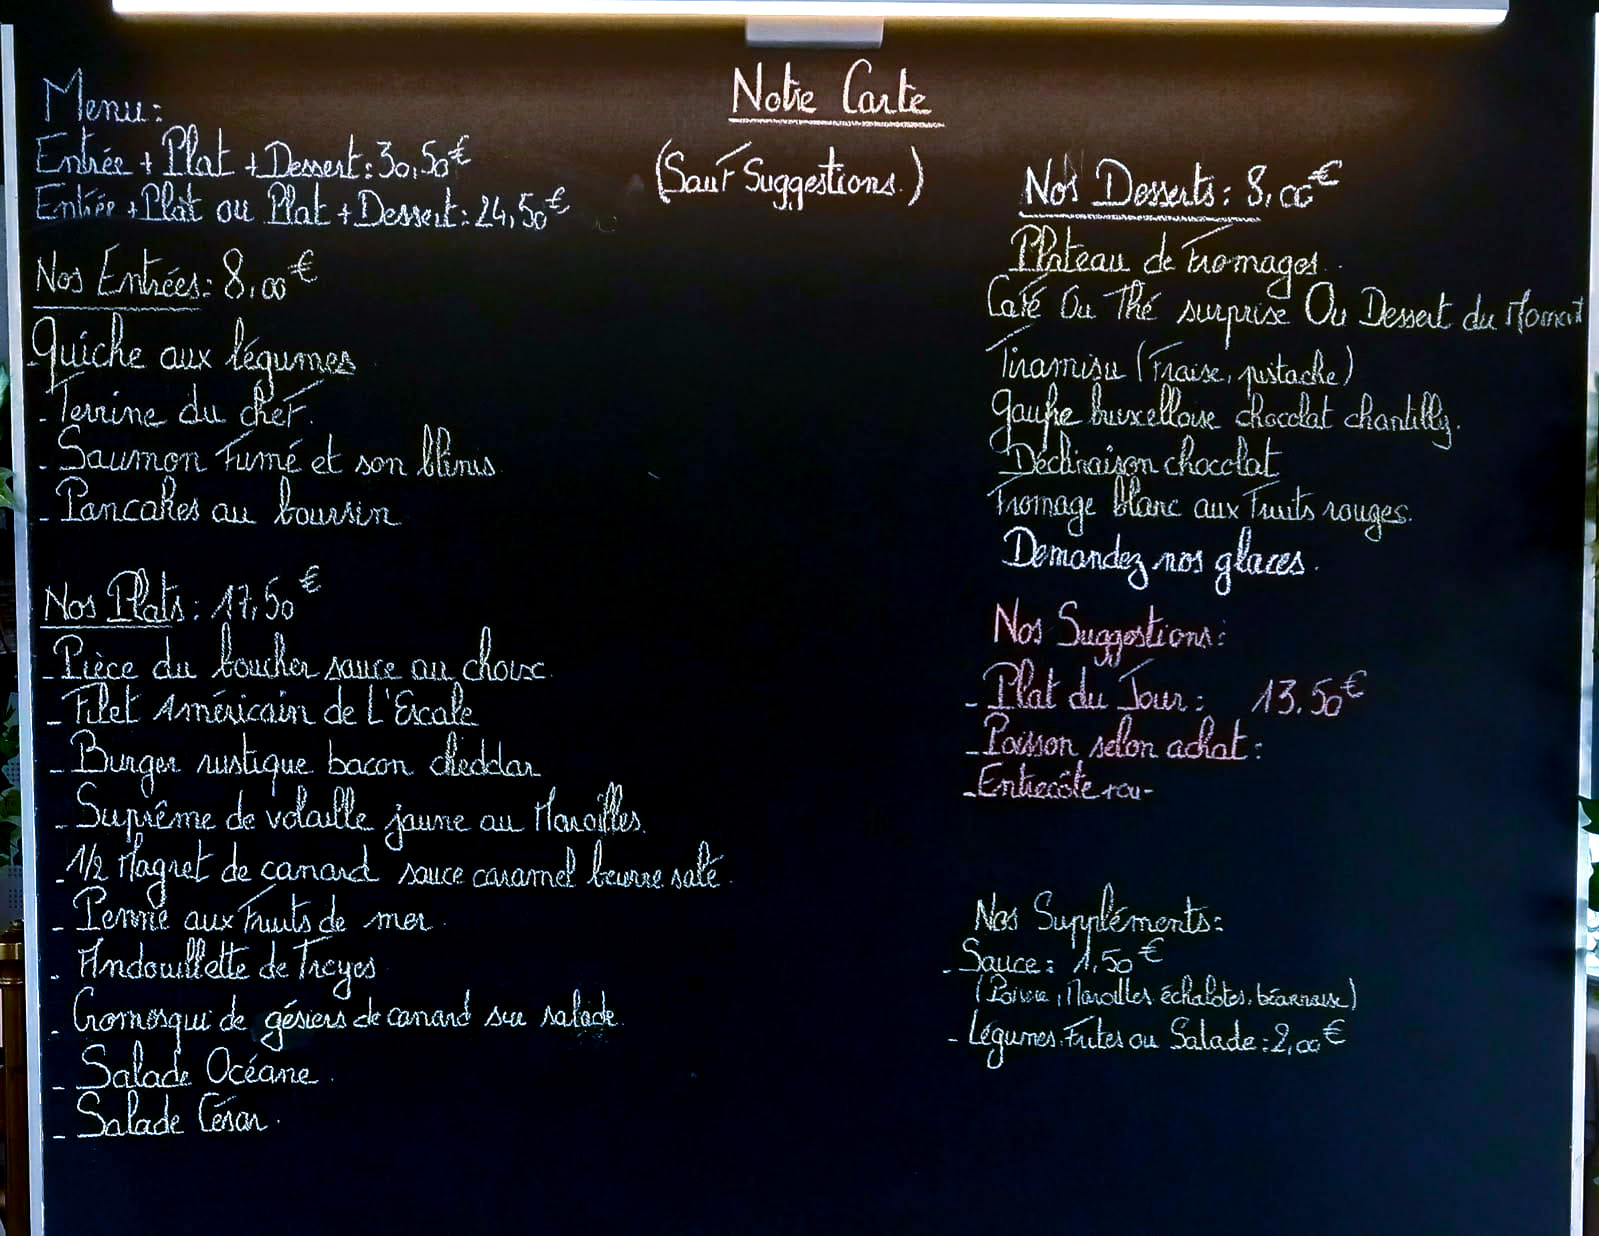 Notre Carte
(Sauf Suggestions.)
Menu:
Entrée + Plat + Dessert: 30,50€
Entrée + Plat ou Plat + Dessert: 24,50€
Nos Entrées: 8,00€
Quiche aux légumes
- Terrine du chef.
- Saumon Fumé et son blinis
- Pancakes au boursin
Nos Plats: 17,50€
- Pièce du boucher sauce au choix
- Filet Américain de L'Escale
- Burger rustique bacon cheddar
- Suprême de volaille jaune au Maroilles.
- 1/2 Magret de canard sauce caramel beurre salé.
- Penne aux Fruits de mer.
- Andouillette de Troyes
- Cromesqui de gésiers de canard sur salade.
- Salade Océane.
- Salade César.
Nos Desserts: 8,00€
Plateau de Fromages.
Café Ou Thé surprise Ou Dessert du Moment
Tiramisu (Fraise, pistache)
Gaufre bruxelloise chocolat chantilly.
Déclinaison chocolat
Fromage blanc aux Fruits rouges.
Demandez nos glaces.
Nos Suggestions:
- Plat du Jour: 13.50€
- Poisson selon achat:
- Entrecôte
Nos Suppléments:
- Sauce: 1,50€
(Poivre, Maroilles échalotes, béarnaise)
- Légumes, Frites ou Salade: 2,00€